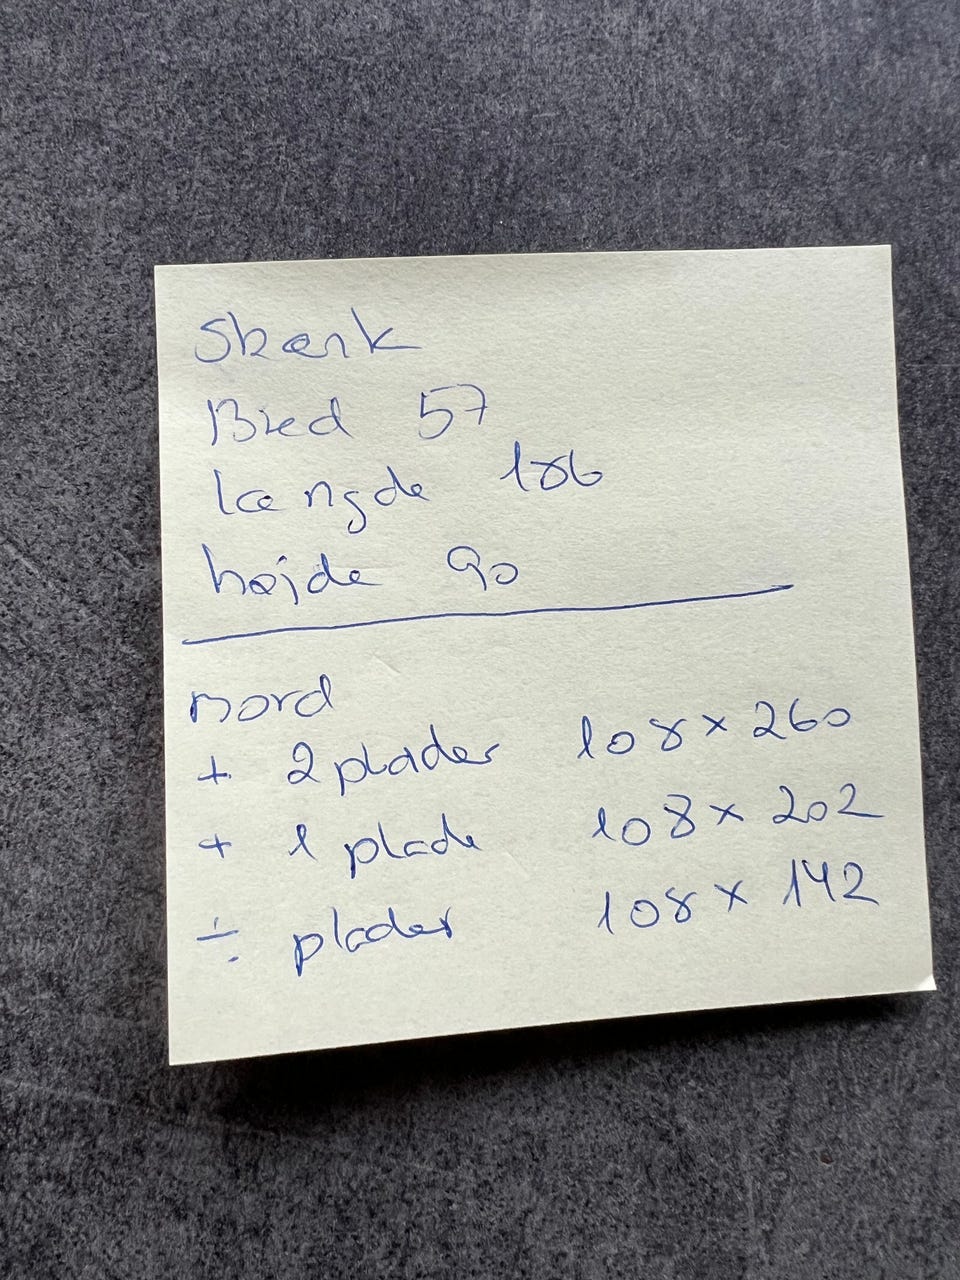 Skænk
Bred 57
længde 186
højde 90
Bord
+ 2 plader 108 x 260
+ 1 plade 108 x 202
÷ plader 108 x 142